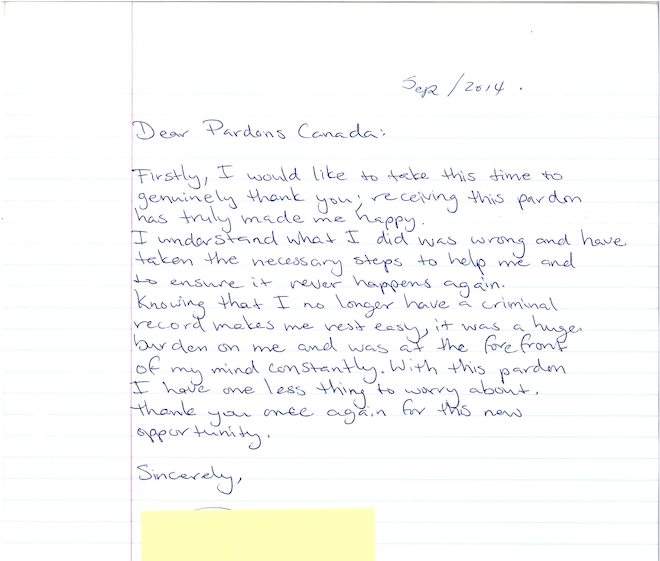 Sep/2014.
Dear Pardons Canada:
Firstly, I would like to take this time to
genuinely thank you; receiving this pardon
has truly made me happy.
I understand what I did was wrong and have
taken the necessary steps to help me and
to ensure it never happens again.
Knowing that I no longer have a criminal
record makes me rest easy, it was a huge
burden on me and was at the forefront
of my mind constantly. With this pardon
I have one less thing to worry about.
Thank you once again for this new
opportunity.
Sincerely,